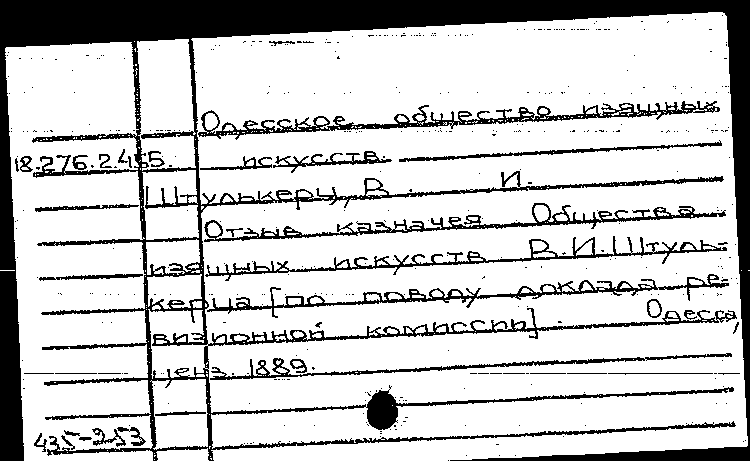 Одесское общество изящных
18.276.2.455. искусств.
Штулькерц, В. И.
Отзыв казначея Общества
изящных искусств В.И.Штуль-
керца [по поводу доклада ре-
визионной комиссии]. Одесса,
ценз. 1889.
435-253